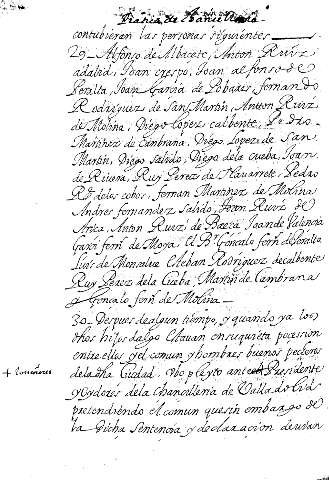 contubieran las personas siguientes
29 Alfonso de Albacete, Anton Ruiz
adalid, Joan crespo, Joan alfonso de
Peralta, Joan Garcia de Pobares, fernando
Rodriguez de San Martin, Anton Ruiz
de Molina, Diego Lopez calbente, Pedro
Martinez de Canbrana, Diego Lopez de San
Martin, Diego Salido, Diego de la Cueba, Joan
de Rivera, Ruy Perez de Navarrete, Pedro
Rs. de los cobos, fernan Martinez de Molina
Andres fernandez Salido, Joan Ruiz de
Arca, Anton Ruiz de Baeza Joan de Valencia
Garci fern de Moya, El Br. Goncalo fern de Peralta
Luis de Monsalve Esteban Rodriguez de calbente
Ruy Perez de la Cueba, Martin de Cambrana
y Goncalo fern de Molina
30 Despues de algun tiempo, y quando ya los
dhos hijos dalgo estauan en su quieta posesion
entre ellos y el comun y hombres buenos pecheros
de la dha Ciudad, vbo pleyto ante Presidente
y Oydores de la Chancilleria de Valladolid
pretendiendo el comun que sin embargo de
la Dicha Sentencia y declaracion deuian